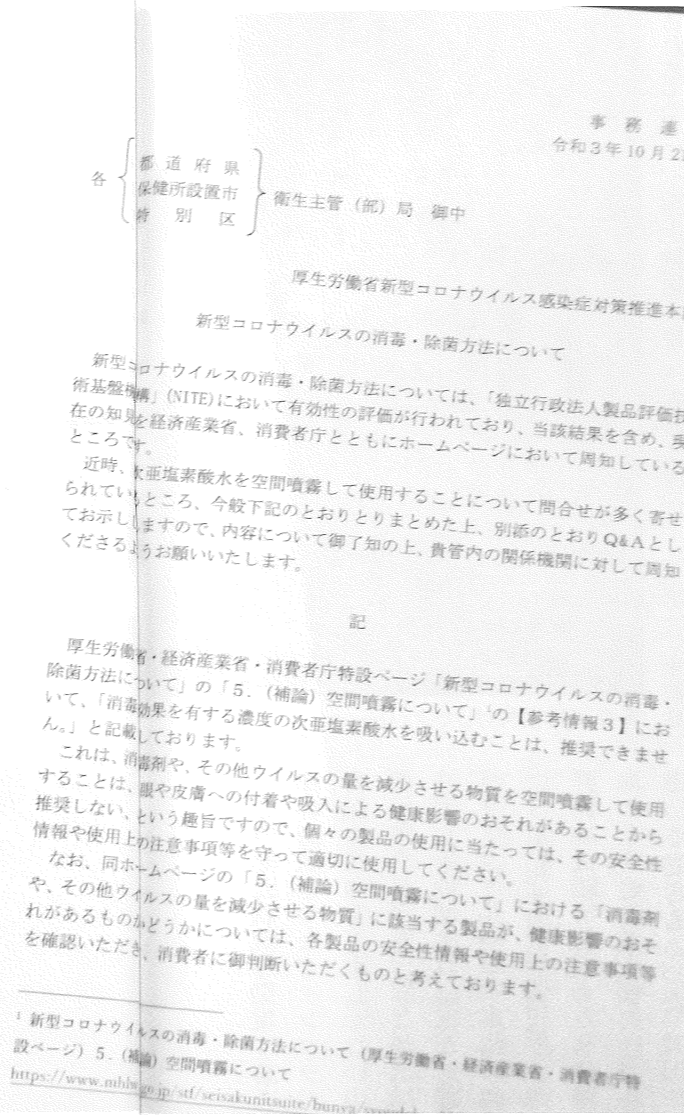 事 務 連
令和３年10月21
各
都道府県
保健所設置市
特別区
衛生主管（部）局 御中
厚生労働省新型コロナウイルス感染症対策推進本
新型コロナウイルスの消毒・除菌方法について
新型コロナウイルスの消毒・除菌方法については、「独立行政法人製品評価技
術基盤機構」(NITE)において有効性の評価が行われており、当該結果を含め、現
在の知見を経済産業省、消費者庁とともにホームページにおいて周知している
ところです。
近時、次亜塩素酸水を空間噴霧して使用することについて問合せが多く寄せ
られているところ、今般下記のとおりとりまとめた上、別添のとおりQ&Aとし
てお示ししますので、内容について御了知の上、貴管内の関係機関に対して周知
くださるようお願いいたします。
記
厚生労働省・経済産業省・消費者庁特設ページ「新型コロナウイルスの消毒・
除菌方法について」の「５．（補論）空間噴霧について」¹の【参考情報３】にお
いて、「消毒効果を有する濃度の次亜塩素酸水を吸い込むことは、推奨できませ
ん。」と記載しております。
これは、消毒剤や、その他ウイルスの量を減少させる物質を空間噴霧して使用
することは、眼や皮膚への付着や吸入による健康影響のおそれがあることから
推奨しない、という趣旨ですので、個々の製品の使用に当たっては、その安全性
情報や使用上の注意事項等を守って適切に使用してください。
なお、同ホームページの「５．（補論）空間噴霧について」における「消毒剤
や、その他ウイルスの量を減少させる物質」に該当する製品が、健康影響のおそ
れがあるものかどうかについては、各製品の安全性情報や使用上の注意事項等
を確認いただき、消費者に御判断いただくものと考えております。
¹ 新型コロナウイルスの消毒・除菌方法について（厚生労働省・経済産業省・消費者庁特
設ページ）５．（補論）空間噴霧について
https://www.mhlw.go.jp/stf/seisakunitsuite/bunya/